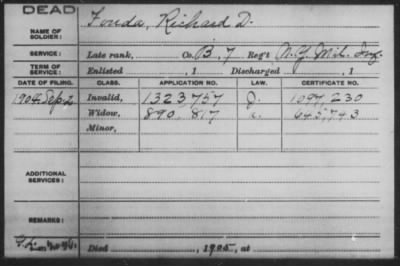 DEAD
NAME OF SOLDIER: Fonda, Richard D.
SERVICE: Late rank, Co. B, 7 Reg't N.Y. Mil. Inf.
TERM OF SERVICE: Enlisted , 1 Discharged , 1
DATE OF FILING. CLASS. APPLICATION NO. LAW. CERTIFICATE NO.
1904 Sep 2 Invalid, 1323757 1097,230
Widow, 890,817 645,743
Minor,
ADDITIONAL SERVICES:
REMARKS:
Died , 1905, at